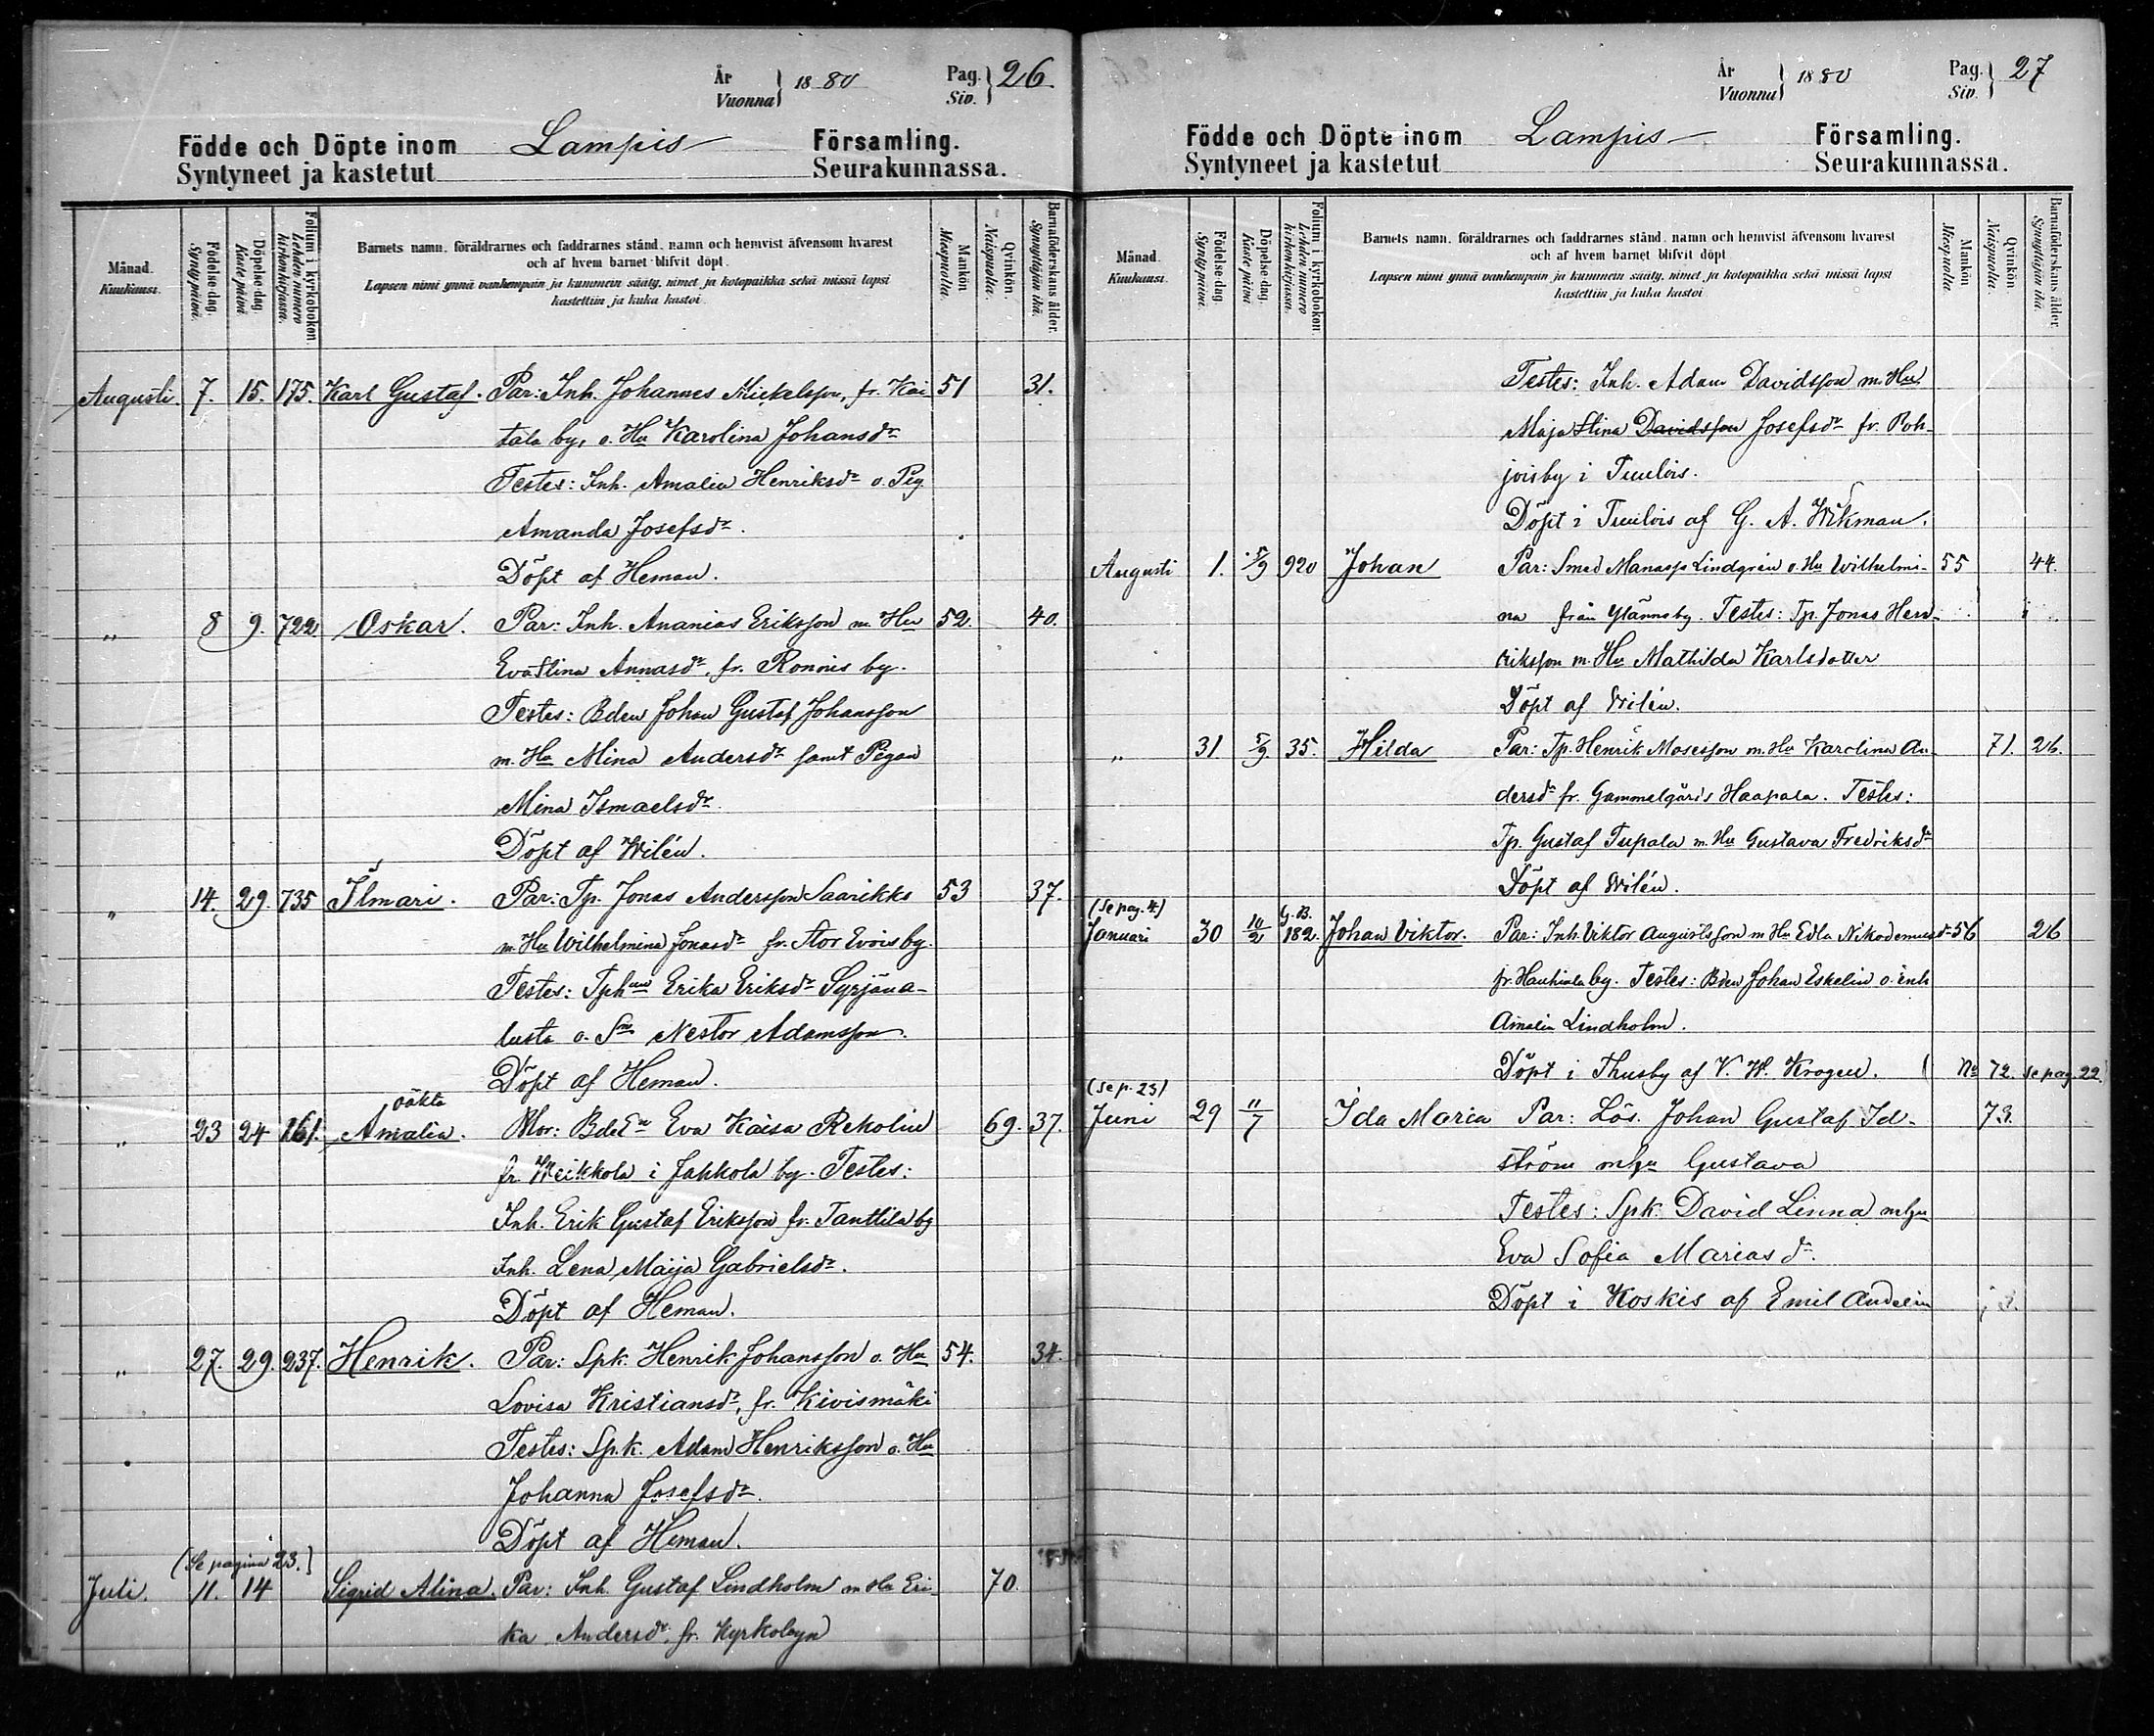 År
Vuonna } 1880
Pag.
Siv. } 26
Födde och Döpte inom Lampis Församling.
Syntyneet ja kastetut Seurakunnassa.
Månad.
Kuukausi.
Födelse dag.
Synty päivä.
Döpelse dag.
Kaste päivä
Folium i kyrkoboken.
Lehden numero
kirkonkirjassa.
Barnets namn, föräldrarnes och faddrarnes stånd, namn och hemvist äfvensom hvarest
och af hvem barnet blifvit döpt.
Lapsen nimi ynnä vanhempain ja kummein sääty, nimet ja kotopaikka sekä missä lapsi
kastettiin ja kuka kastoi
Mankön
Miespuolia.
Qvinkön.
Naispuolia.
Barnaföderskans ålder.
Synnyttäjän ikä.
Augusti. 7. 15. 175. Karl Gustaf. Par: Inh. Johannes Mickelsson, fr. Kai 51 31.
tala by, o. Hu Karolina Johansdr
Testes: Inh. Amalia Henriksdr o. Pig.
Amanda Josefsdr.
Döpt af Heman.
„ 8 9. 722 Oskar. Par: Inh. Ananias Eriksson m. Hu 52. 40.
Eva Stina Annasdr. fr. Ronnis by.
Testes: Bden Johan Gustaf Johansson
m. Hu Mina Andersdr samt Pigan
Mina Ismaelsdr.
Döpt af Wilén.
„ 14. 29. 735 Ilmari. Par: Tp. Jonas Andersson Saarikko 53 37.
m. Hu Wilhelmina Jonasdr fr. Stor Evois by.
Testes: Tphun Erika Eriksdr Syrjäna-
lusta o. Sn Nestor Adamsson.
Döpt af Heman.
oäkta
„ 23 24 161. Amalia. Mor: BdeEn Eva Kaisa Reholin 69. 37.
fr. Weikkola i Jahkola by. Testes:
Inh. Erik Gustaf Eriksson fr. Tanttila by
Inh. Lena Maija Gabrielsdr.
Döpt af Heman.
„ 27. 29. 237. Henrik. Par: Spk. Henrik Johansson o. Hu 54. 34.
Lovisa Kristiansdr, fr. Kivismäki
Testes: Spk. Adam Henriksson o. Hu
Johanna Josefsdr.
Döpt af Heman.
(Se pagina 23.)
Juli. 11. 14 Sigrid Alina. Par: Inh. Gustaf Lindholm m Hu Eri- 70.
ka Andersdr. fr. Kyrkobyn
År
Vuonna } 1880
Pag.
Siv. } 27
Födde och Döpte inom Lampis Församling.
Syntyneet ja kastetut Seurakunnassa.
Månad.
Kuukausi.
Födelse dag.
Synty päivä.
Döpelse dag.
Kaste päivä
Folium i kyrkoboken.
Lehden numero
kirkonkirjassa.
Barnets namn, föräldrarnes och faddrarnes stånd, namn och hemvist äfvensom hvarest
och af hvem barnet blifvit döpt
Lapsen nimi ynnä vanhempain ja kummein sääty, nimet ja kotopaikka sekä missä lapsi
kastettiin ja kuka kastoi
Mankön
Miespuolia.
Qvinkön.
Naispuolia.
Barnaföderskans ålder.
Synnyttäjän ikä.
Testes: Inh. Adam Davidsson m. Hu
Maja Stina Davidsson Josefsdr fr. Poh-
joisby i Tuulois.
Döpt i Tuulois af G. A. Wikman.
Augusti 1. 5/9 920 Johan Par: Smed Manasse Lindgren o. Hu Wilhelmi- 55 44.
na från Ylännsby. Testes: Tp. Jonas Hen-
riksson m. Hu Mathilda Karlsdotter
Döpt af Wilén.
„ 31. 5/9. 35. Hilda Par: Tp. Henrik Mosesson m. Hu Karolina An- 71. 26.
dersdr fr. Gammelgårds Haapala. Testes:
Tp. Gustaf Tupala m. Hu Gustava Fredriksdr
Döpt af Wilén.
(Se pag. 4.) G. B.
Januari 30 10/2 182. Johan Viktor. Par: Inh. Viktor Augustsson m Hu Edla Nikodemusdr 56 26
fr. Hauhiala by. Testes: Bden Johan Eskelin o. inh
Amalia Lindholm.
Döpt i Thusby af V. W. Krogen. ( No 72. se pag. 22.)
(Se p. 23)
Juni 29 11/7 Ida Maria Par: Lös. Johan Gustaf Id- 73.
ström mhu Gustava
Testes: Spk. David Linna mhu
Eva Sofia Mariasdr.
Döpt i Koskis af Emil Andelin